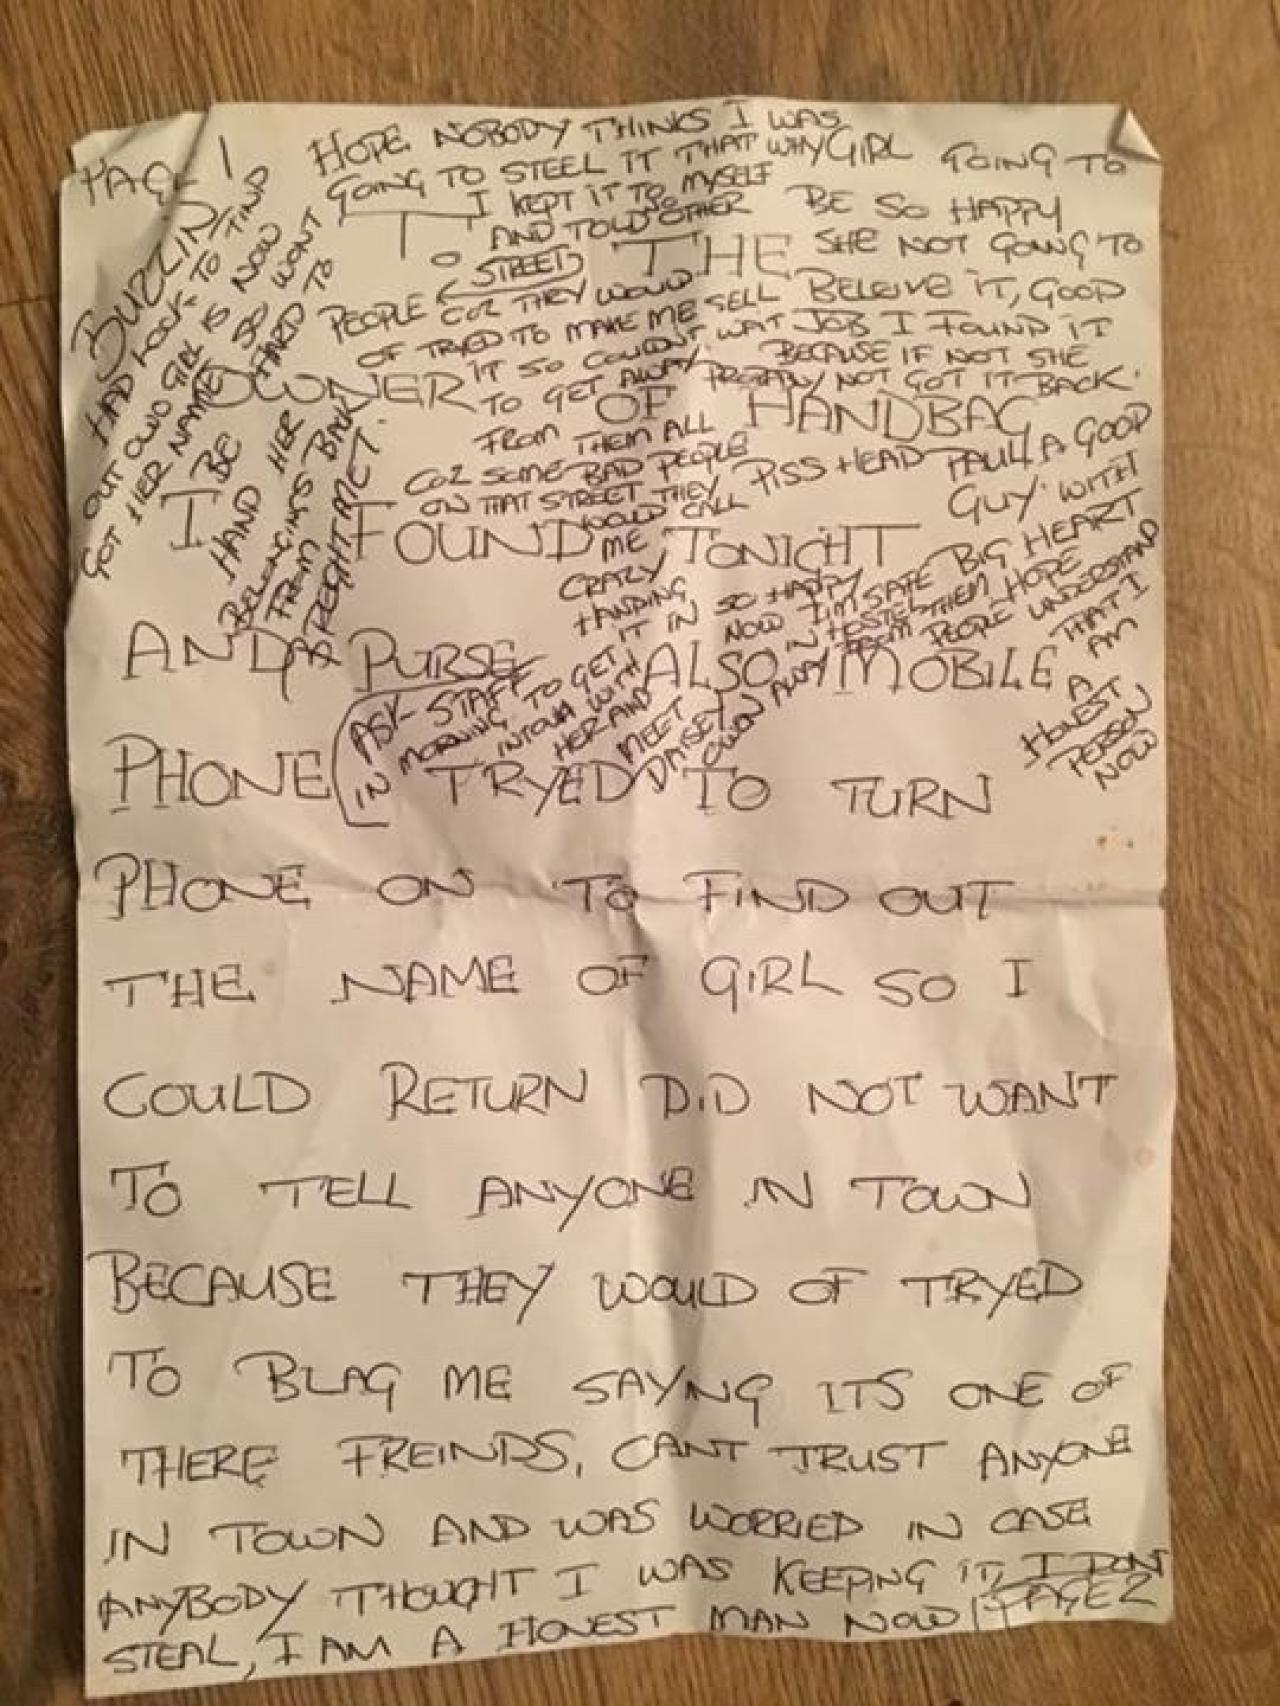 PAGE 1
T. THE
OWNER OF HANDBAG
I FOUND TONIGHT
AND PURSE ALSO MOBILE
PHONE TRYED TO TURN
PHONE ON TO FIND OUT
THE NAME OF GIRL SO I
COULD RETURN DID NOT WANT
TO TELL ANYONE IN TOWN
BECAUSE THEY WOULD OF TRYED
TO BLAG ME SAYING ITS ONE OF
THERE FREINDS, CANT TRUST ANYONE
IN TOWN AND WAS WORRIED IN CASE
ANYBODY THOUGHT I WAS KEEPING IT, I DON'T
STEAL, I AM A HONEST MAN NOW! PAGE 2
HOPE NOBODY THINGS I WAS
GOING TO STEEL IT THAT WHY
I KEPT IT TO MYSELF
AND TOLD OTHER
PEOPLE (STREET)
COZ THEY WOULD
OF TRYED TO MAKE ME SELL
IT SO COULDN'T WAIT
TO GET AWAY
FROM THEM ALL
COZ SOME BAD PEOPLE
ON THAT STREET THEY
WOULD CALL
ME
CRAZY
HANDING
IT IN SO HAPPY
NOW I'M SAFE
IN HOSTEL
AWAY FROM THEM HOPE
PEOPLE UNDERSTAND
THAT I
AM
A
HONEST
PERSON
NOW
GIRL GOING TO
BE SO HAPPY
SHE NOT GOING TO
BELEIVE IT, GOOD
JOB I FOUND IT
BECAUSE IF NOT SHE
PROBALY NOT GOT IT BACK.
PISS HEAD PAUL! A GOOD
GUY WITH
BIG HEART
BUZZIN!
HAD LOOK TO FIND
OUT OWO GIRL IS NOW
GOT HER NAME SO WONT
BE HARD TO
HAND HER
BELONGINGS BACK
FROM
ASK STAFF
IN MORNING TO GET
INTOUH WITH
HER AND
MEET